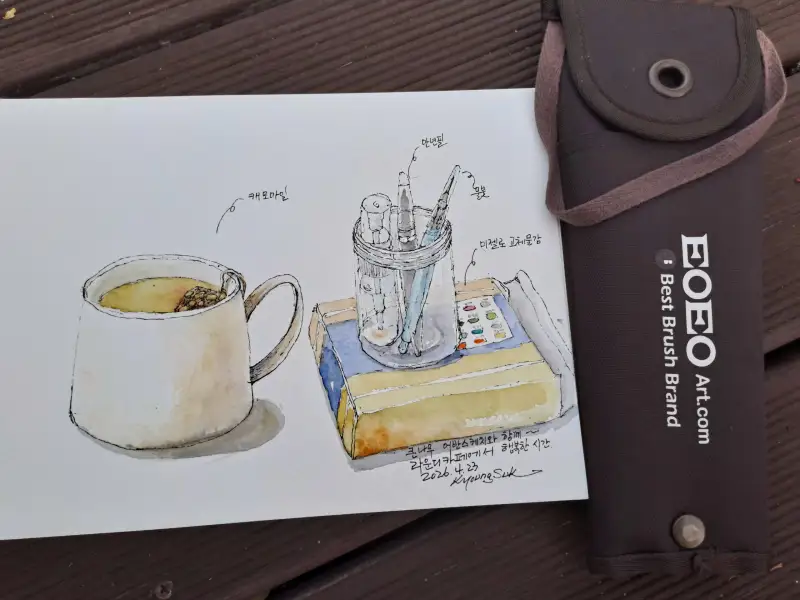 캐모마일
만년필
물붓
미젤로 고체물감
큰나무 어반스케치와 함께~
라운디카페에서 행복한 시간.
2026. 4. 23
KyeongSuk
EOEO Art.com
: Best Brush Brand